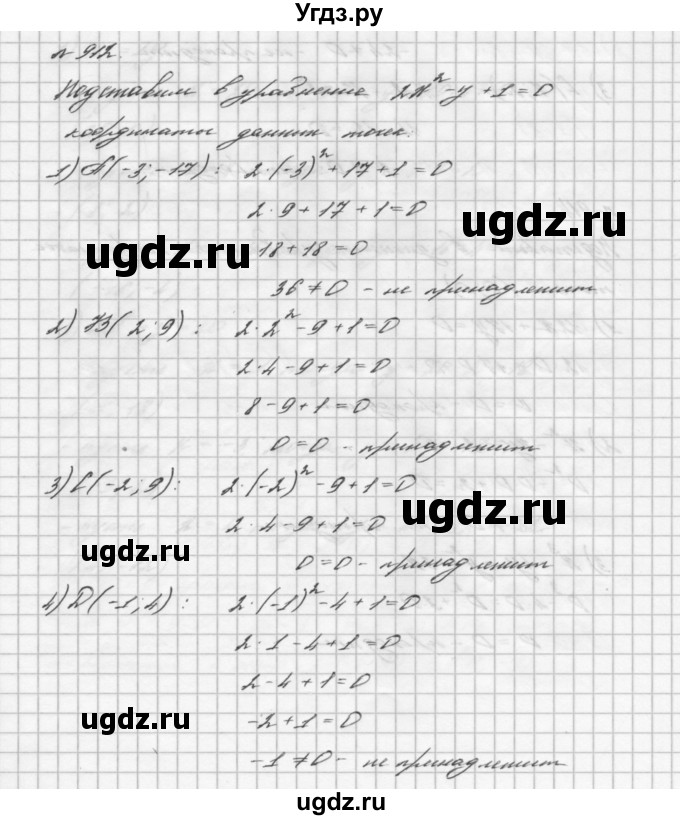 Угдз.ру
№ 912.
Подставим в уравнение 2x² - y + 1 = 0
координаты данных точек:
1) A(-3; -17): 2·(-3)² + 17 + 1 = 0
2·9 + 17 + 1 = 0
ugdz.ru
ugdz.ru
18 + 18 = 0
36 ≠ 0 - не принадлежит
2) B(2; 9): 2·2² - 9 + 1 = 0
2·4 - 9 + 1 = 0
8 - 9 + 1 = 0
0 = 0 - принадлежит
3) C(-2; 9): 2·(-2)² - 9 + 1 = 0
ugdz.ru
2·4 - 9 + 1 = 0
ugdz.ru
0 = 0 - принадлежит
4) D(-1; 4): 2·(-1)² - 4 + 1 = 0
2·1 - 4 + 1 = 0
2 - 4 + 1 = 0
ugdz.ru
-2 + 1 = 0
-1 ≠ 0 - не принадлежит
ugdz.ru